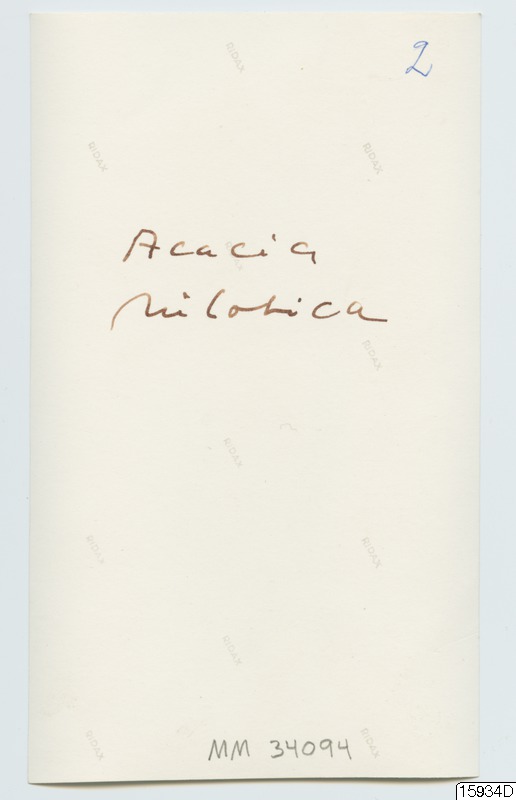 2
RIDAX
RIDAX
RIDAX
Acacia
RIDAX
nilotica
RIDAX
RIDAX
RIDAX
RIDAX
RIDAX
RIDAX
RIDAX
MM 34094
15934D